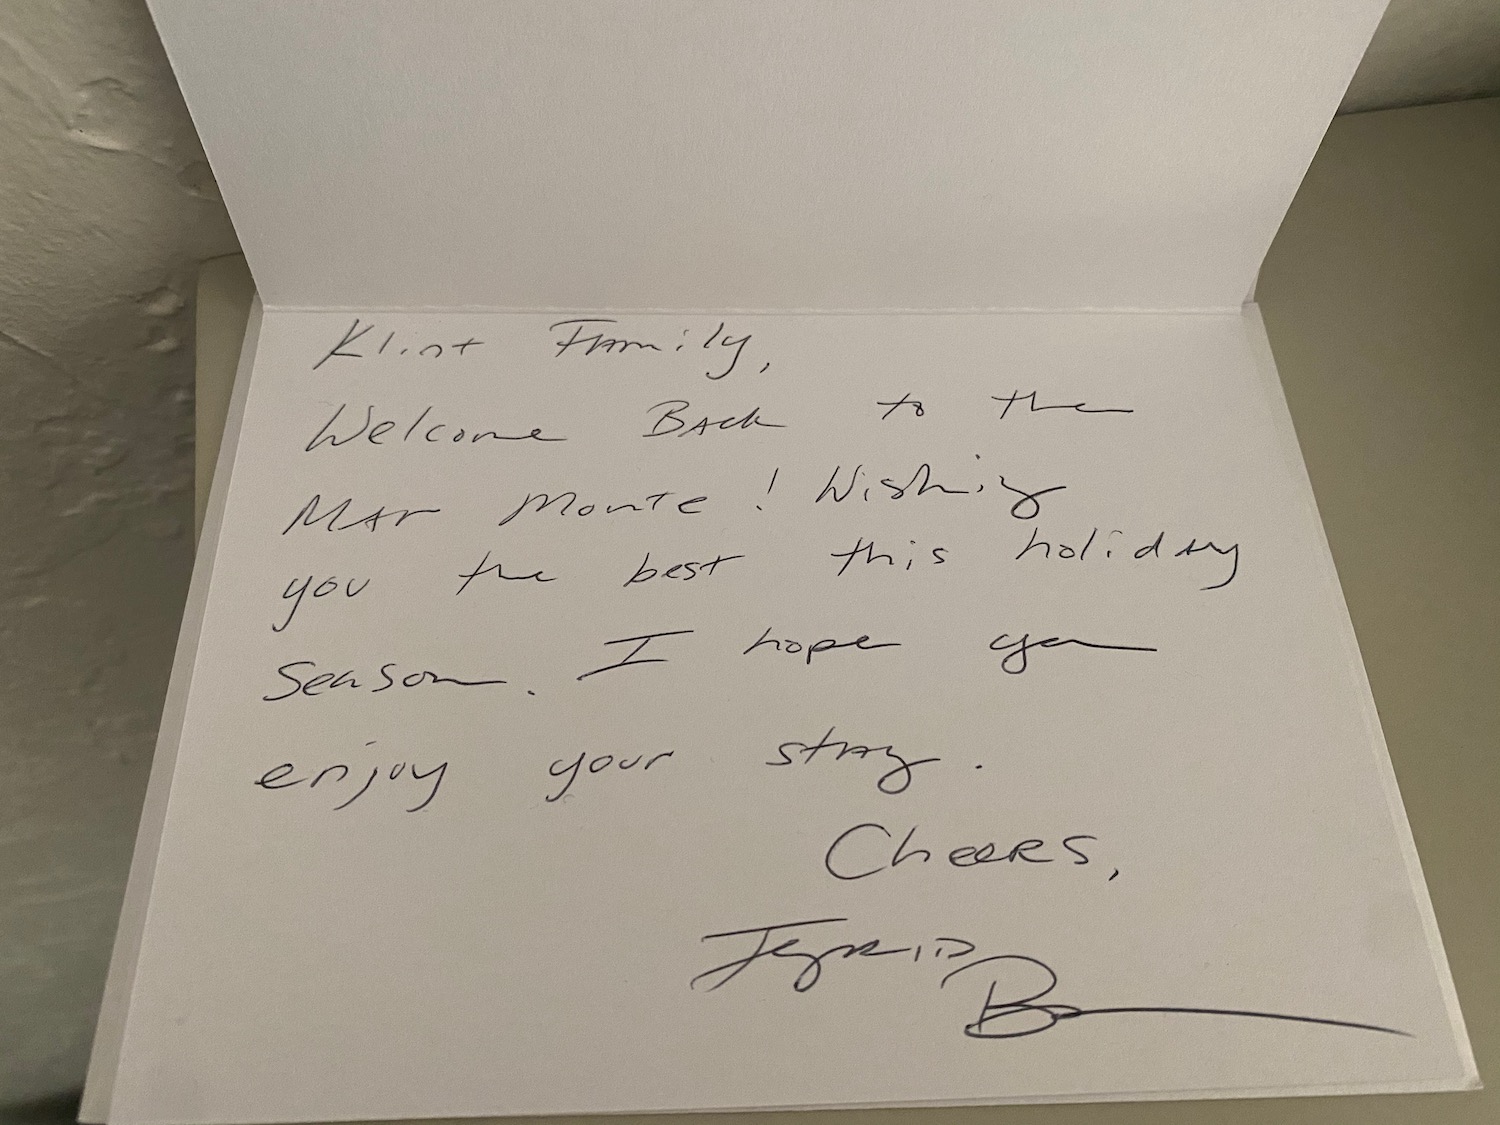 Klint Family,
Welcome Back to the
Mar Monte! Wishing
you the best this holiday
season. I hope you
enjoy your stay.
Cheers,
Ingrid